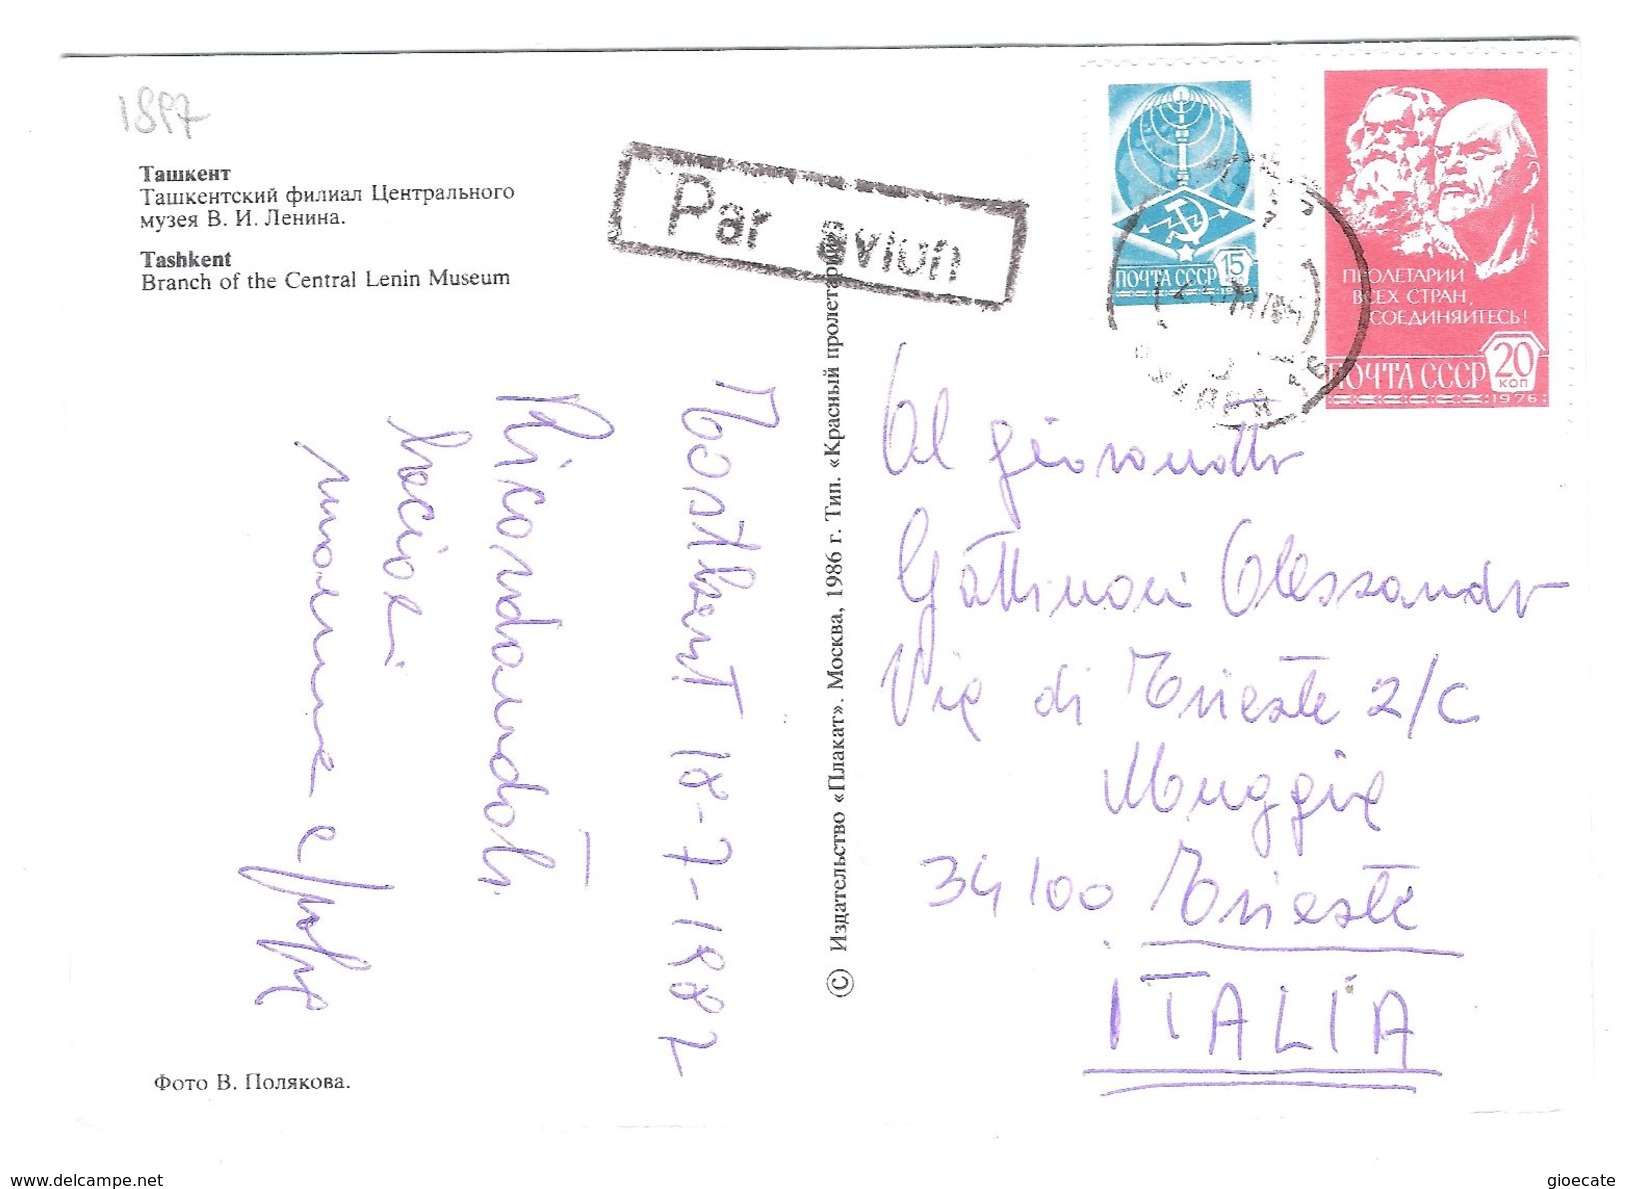 1897
Ташкент
Ташкентский филиал Центрального
музея В. И. Ленина.
Tashkent
Branch of the Central Lenin Museum
Par avion
ПОЧТА СССР 15
КОП
1976
ПРОЛЕТАРИИ
ВСЕХ СТРАН,
СОЕДИНЯЙТЕСЬ!
ПОЧТА СССР 20
КОП
1976
18-7-1987
Ricordandoti
bacioni
mamma e
© Издательство «Плакат». Москва, 1986 г. Тип. «Красный пролетарий»
Al
Gattinoni Alessandro
Via di Trieste 2/C
Muggia
34100 Trieste
ITALIA
Фото В. Полякова.
www.delcampe.net
gioecate